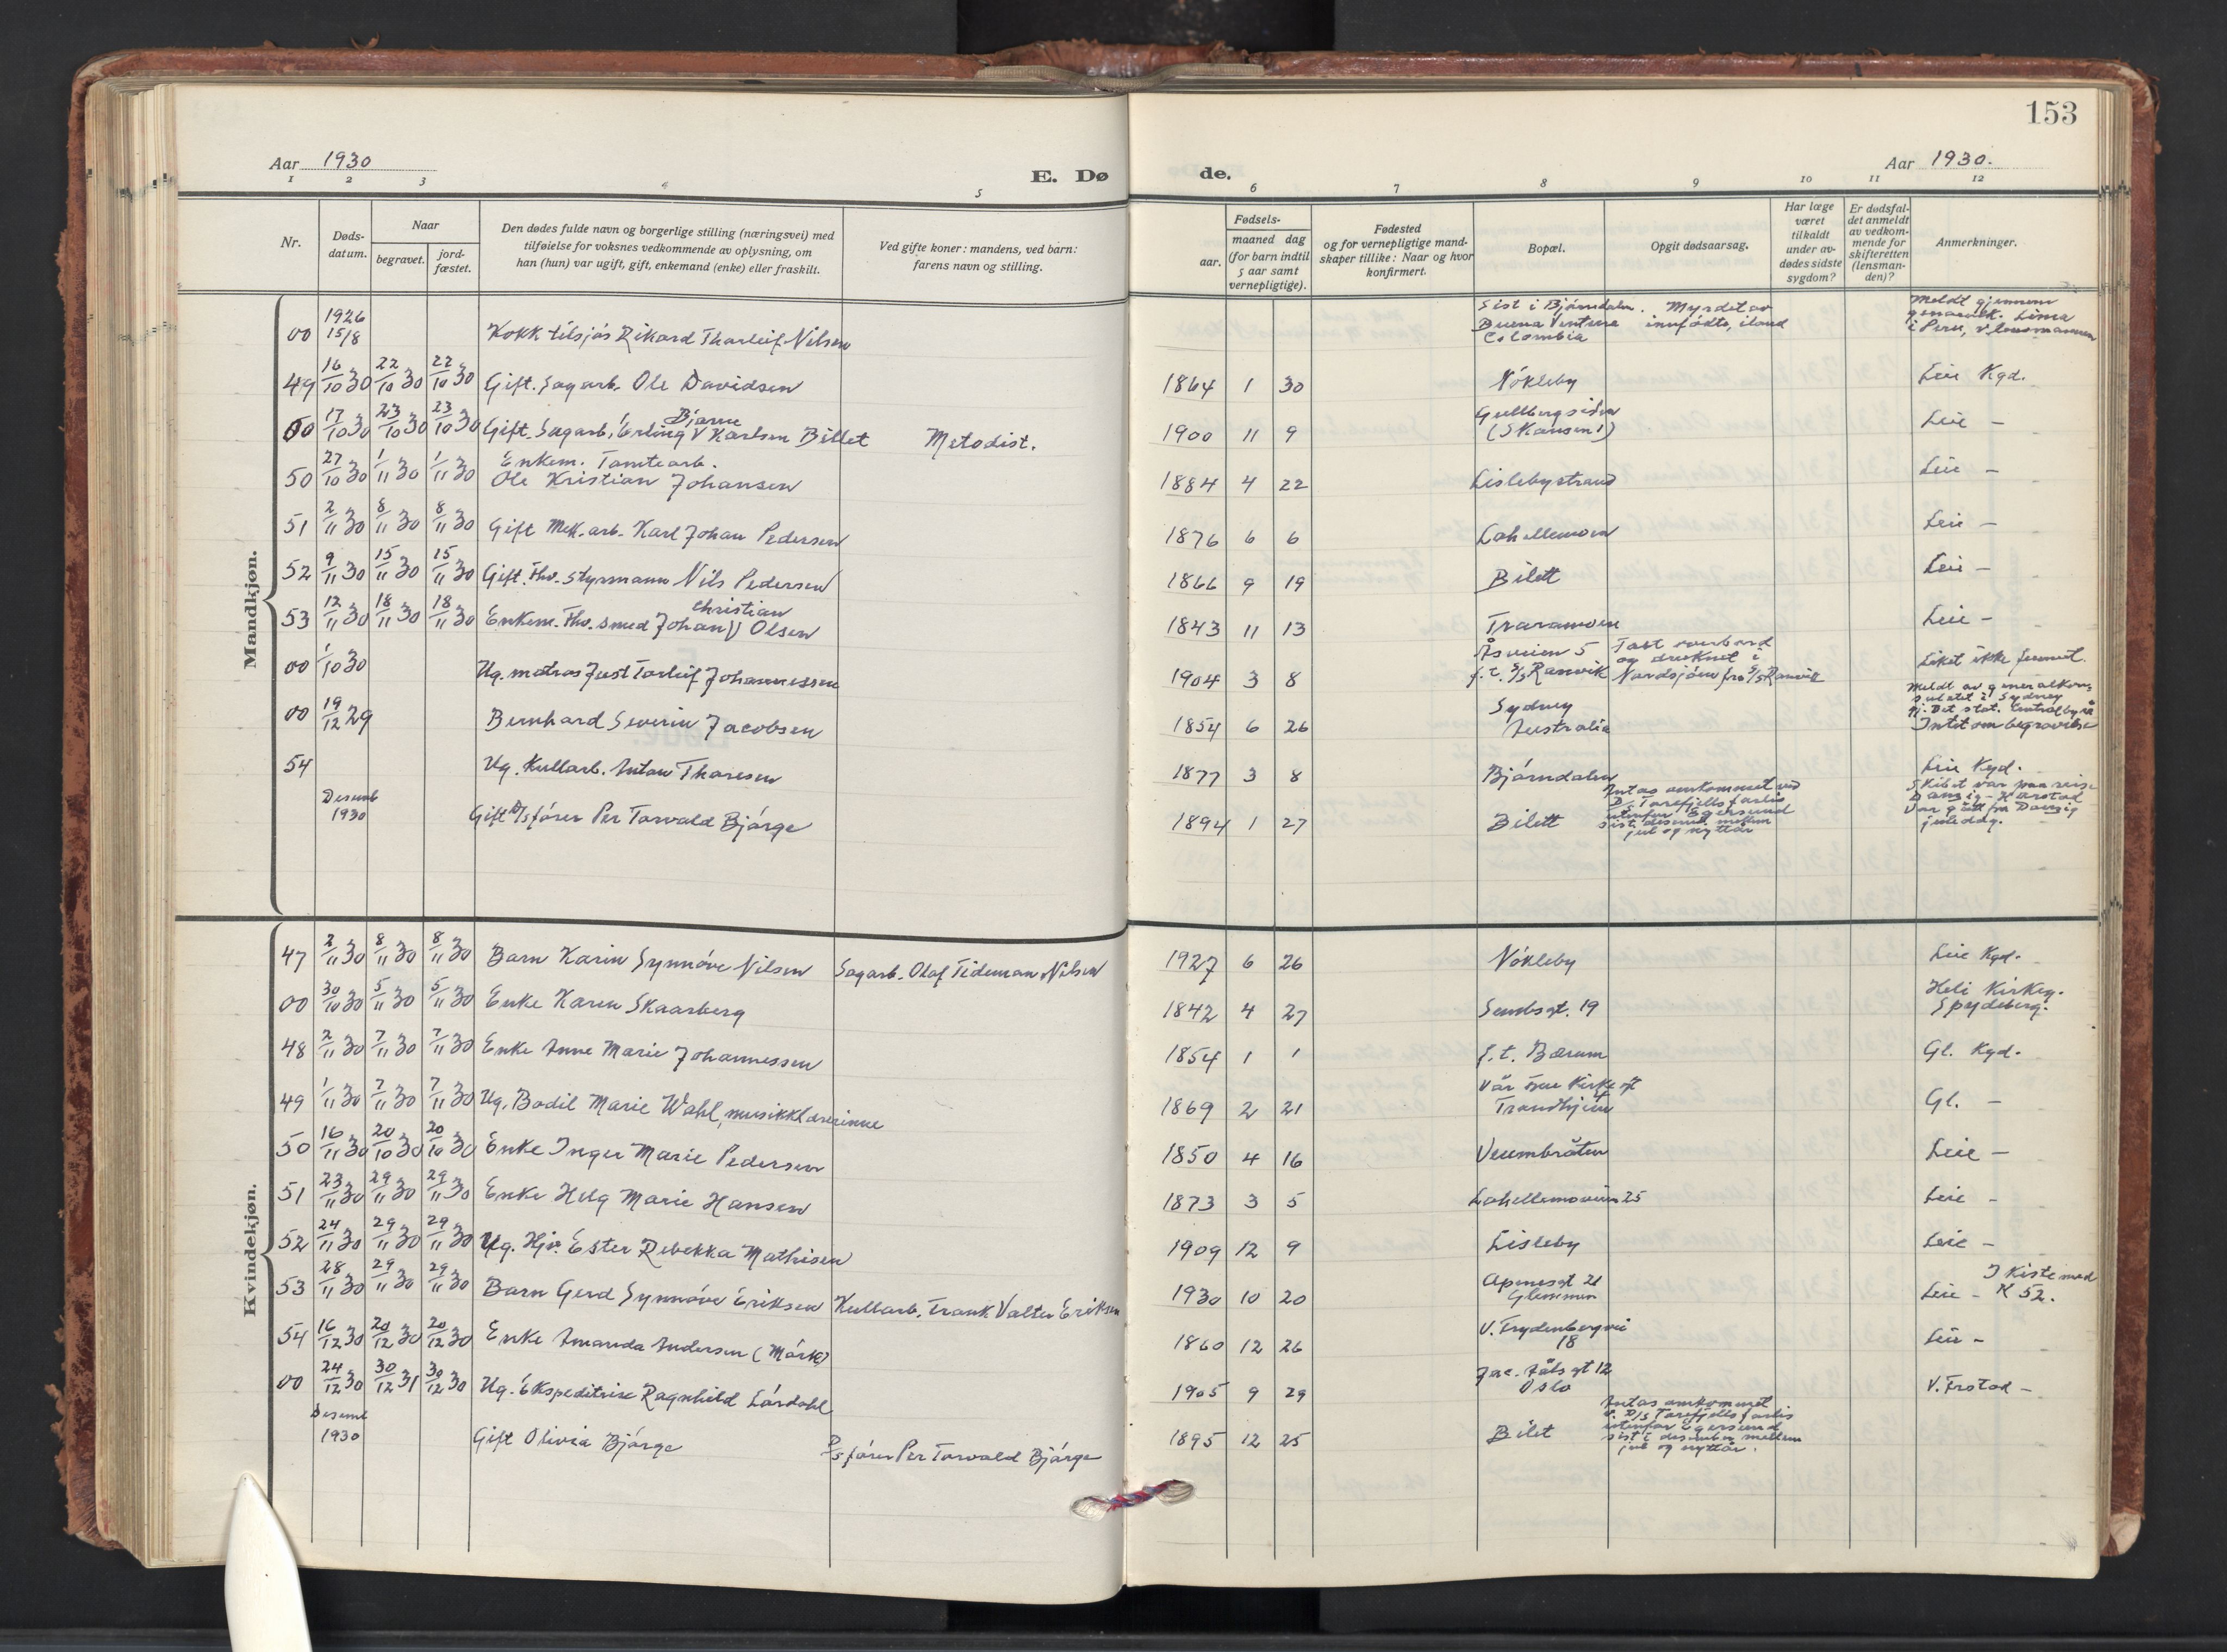 153
Aar 1930
E. Dø
de.
Aar 1930.
1 2 3 4 5 6 7 8 9 10 11 12
Nr.
Døds-
datum.
Naar
begravet.
jord-
fæstet.
Den dødes fulde navn og borgerlige stilling (næringsvei) med
tilføielse for voksnes vedkommende av oplysning, om
han (hun) var ugift, gift, enkemand (enke) eller fraskilt.
Ved gifte koner: mandens, ved barn:
farens navn og stilling.
Fødsels-
aar.
maaned dag
(for barn indtil
5 aar samt
vernepligtige).
Fødested
og for vernepligtige mand-
skaper tillike: Naar og hvor
konfirmert.
Bopæl.
Opgit dødsaarsag.
Har læge
været
tilkaldt
under av-
dødes sidste
sygdom?
Er dødsfal-
det anmeldt
av vedkom-
mende for
skifteretten
(lensman-
den)?
Anmerkninger.
Mandkjøn.
00 1926 15/8 Kokk tilsjøs Rikard Thorleif Nilsen
Sist i Bjørndalen.
Buena Ventura
Colombia
Myrdet av
innfødte, iland
Meldt gjennem
generalk. Lima
i Peru, v/lensmannen
49 16/10 30 22/10 30 22/10 30 Gift. Sagarb. Ole Davidsen 1864 1 30 Nökleby Leie Kgd.
00 17/10 30 23/10 30 23/10 30 Gift. Sagarb. Erling V Bjarne Karlsen Billet Metodist. 1900 11 9 Gullbergsiden (Skansen 1) Leie –
50 27/10 30 1/11 30 1/11 30 Enkem. Tomtearb.
Ole Kristian Johansen 1884 4 22 Lislebystrand Leie –
51 2/11 30 8/11 30 8/11 30 Gift Mek. arb. Karl Johan Pedersen 1876 6 6 Lahellemoen Leie –
52 9/11 30 15/11 30 15/11 30 Gift. Fhv. Styrmann Nils Pedersen 1866 9 19 Bilett Leie –
53 12/11 30 18/11 30 18/11 30 Enkem. Fhv. smed Johan V Christian Olsen 1843 11 13 Traramoen Leie –
00 1/10 30 Ug. matros Just Torleif Johannessen 1904 3 8 Åsveien 5
f. t. S/S Ranvik
Falt overbord
og druknet i
Nordsjöen fra S/S Ranvik
Liket ikke funnet.
00 19/12 29 Bernhard Severin Jacobsen 1854 6 26 Sydney
Australia
Meldt av generalkon-
sulatet i Sydney
gj. Det stat. Centralbyrå
Intet om begravelse
54 Ug. Kullarb. Anton Thoresen 1877 3 8 Bjørndalen Leie Kgd.
Desemb
1930 Gift D/S fører Per Torvald Bjørge 1894 1 27 Bilett
Antas omkommet ved
D/S Tarefjells forlis
utenfor Egersund
sist i desemb. mellem
jul og nyttår
Skibet var paa reise
Danzig – Harstad
Var gått fra Danzig
juledag.
Kvindekjøn.
47 2/11 30 8/11 30 8/11 30 Barn Karin Synnöve Nilsen Sagarb. Olaf Tideman Nilsen 1927 6 26 Nökleby Leie Kgd.
00 30/10 30 5/11 30 5/11 30 Enke Karen Skaarberg 1842 4 27 Sembsgt. 19 Heli Kirkeg.
Spydeberg.
48 2/11 30 7/11 30 7/11 30 Enke Anne Marie Johannessen 1854 1 1 f. t. Bærum Gl. Kgd.
49 1/11 30 7/11 30 7/11 30 Ug. Bodil Marie Wahl, musikklærerinne 1869 2 21 Vår Frue Kirkegt
Trondhjem Gl. –
50 16/11 30 20/10 30 20/10 30 Enke Inger Marie Pedersen 1850 4 16 Veumbråten Leie –
51 23/11 30 29/11 30 29/11 30 Enke Helg Marie Hansen 1873 3 5 Lahellemoveien 25 Leie –
52 24/11 30 29/11 30 29/11 30 Ug. Hjv. Ester Rebekka Mathisen 1909 12 9 Lisleby Leie –
53 28/11 30 29/11 30 29/11 30 Barn Gerd Synnöve Eriksen Kullarb. Frank Valter Eriksen 1930 10 20 Apenesgt 21
Glemmen Leie – I kiste med
K 52.
54 16/12 30 20/12 30 20/12 30 Enke Amanda Andersen (Mörk) 1860 12 26 V. Frydenbergvei
18 Leie –
00 24/12 30 30/12 31 30/12 30 Ug. Ekspeditrise Ragnhild Lördahl 1905 9 29 Jac. Aalsgt 12
Oslo V. Frstad –
Desemb
1930 Gift Olivia Bjørge D/S fører Per Torvald Bjørge 1895 12 25 Bilet
Antas omkommet
v. D/S Tarefjells forlis
utenfor Egersund
sist i desember mellem
jul og nyttår.